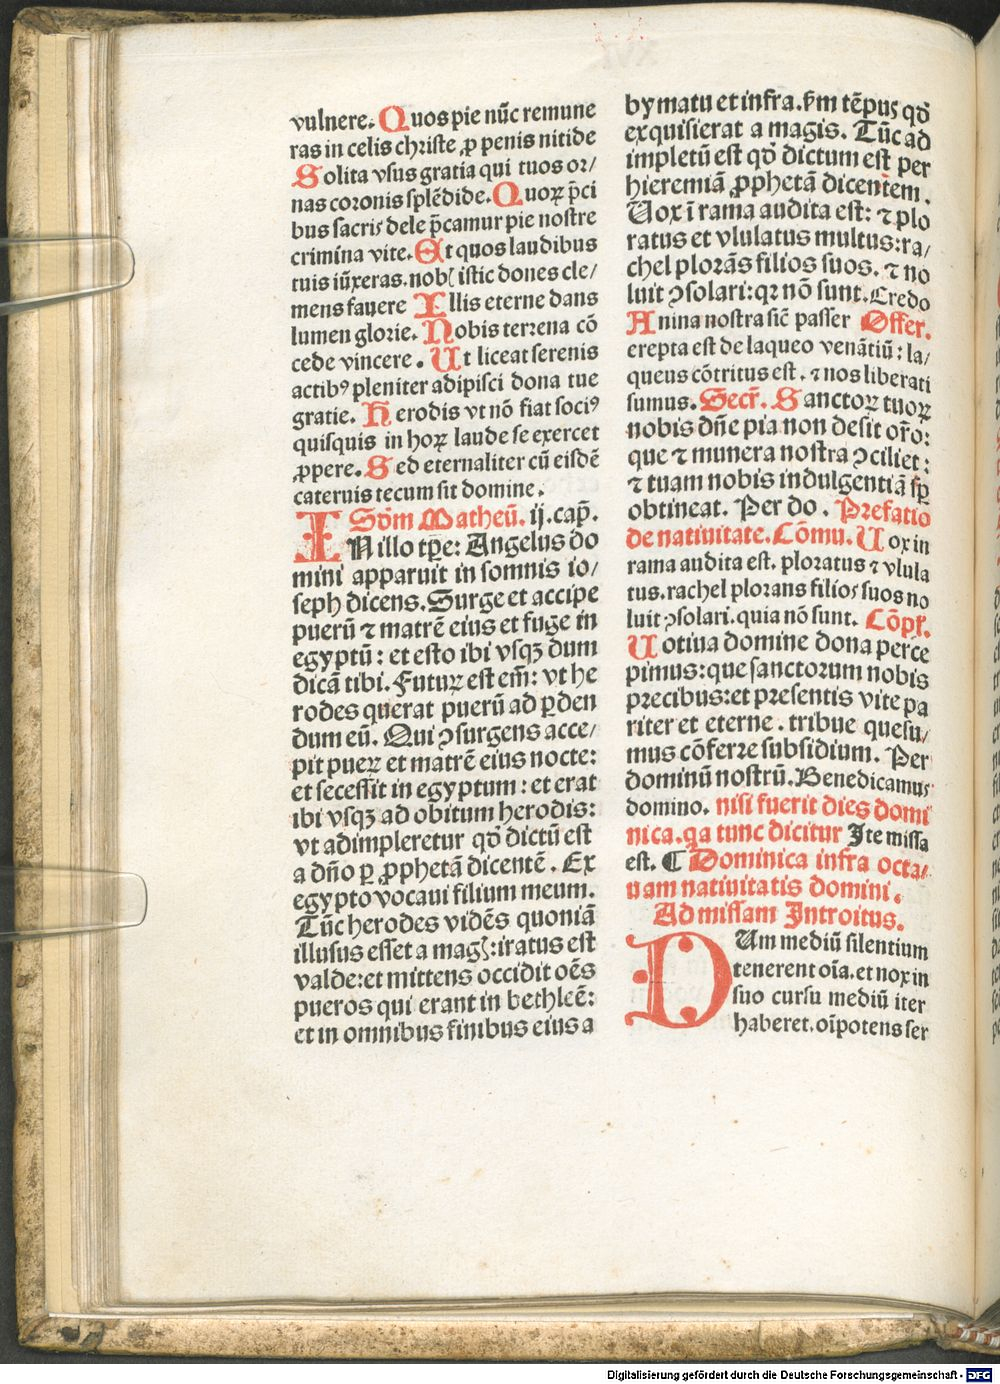 vulnere. Quos pie nūc remune
ras in celis christe ꝓ penis nitide
Solita vsus gratia qui tuos or/
nas coronis splēdide. Quoꝝ p̄ci
bus sacris dele p̄camur pie nostre
crimina vite. Et quos laudibus
tuis iūxeras. nobꝭ istic dones cle/
mens fauere Illis eterne dans
lumen glorie. Nobis terrena cō
cede vincere. Ut liceat serenis
actibꝰ pleniter adipisci dona tue
gratie. Herodis vt nō fiat sociꝰ
quisquis in hoꝝ laude se exercet
ꝓpere. Sed eternaliter cū eisdē
cateruis tecum sit domine.
Scd̄m Matheū. ij. cap̄.
IN illo tp̄e: Angelus do
mini apparuit in somnis io/
seph dicens. Surge et accipe
puerū ⁊ matrē eius et fuge in
egyptū: et esto ibi vsqꝫ dum
dicā tibi. Futuꝝ est em̄: vt he
rodes querat puerū ad ꝑden
dum eū. Qui ꝯsurgens acce/
pit pueꝝ et matrē eius nocte:
et secessit in egyptum: et erat
ibi vsqꝫ ad obitum herodis:
vt adimpleretur qd̄ dictū est
a dn̄o ꝑ ꝓphetā dicentē. Ex
egypto vocaui filium meum.
Tūc herodes vidēs quoniā
illusus esset a magꝭ: iratus est
valde: et mittens occidit oēs
pueros qui erant in bethleē:
et in omnibus finibus eius a
bymatu et infra. ẜm tēpus qd̄
exquisierat a magis. Tūc ad
impletū est qd̄ dictum est per
hieremiā ꝓphetā dicentem.
Uox ī rama audita est: ⁊ plo
ratus et vlulatus multus: ra/
chel plorās filios suos. ⁊ no
luit ꝯsolari: qꝛ nō sunt. Credo
Anina nostra sic̄ passer Offer.
erepta est de laqueo venātiū: la/
queus cōtritus est. ⁊ nos liberati
sumus. Secr̄. Sanctoꝝ tuoꝝ
nobis dn̄e pia non desit or̄o:
que ⁊ munera nostra ꝯciliet:
⁊ tuam nobis indulgentiā sꝑ
obtineat. Per do. Prefatio
de natiuitate. Cōmu. Uox in
rama audita est. ploratus ⁊ vlula
tus. rachel plorans filios suos no
luit ꝯsolari. quia nō sunt. Cōpl̄.
Uotiua domine dona perce
pimus: que sanctorum nobis
precibus: et presentis vite pa
riter et eterne. tribue quesu/
mus cōferre subsidium. Per
dominū nostrū. Benedicamus
domino. nisi fuerit dies domi
nica. qa tunc dicitur Ite missa
est. ¶ Dominica infra octa/
uam natiuitatis domini.
Ad missam Introitus.
DUm mediū silentium
tenerent oīa. et nox in
suo cursu mediū iter
haberet. oīpotens ser
Digitalisierung gefördert durch die Deutsche Forschungsgemeinschaft - DFG